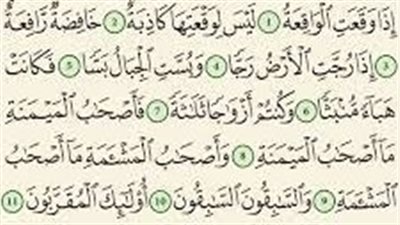 إِذَا وَقَعَتِ ٱلْوَاقِعَةُ ١ لَيْسَ لِوَقْعَتِهَا كَاذِبَةٌ ٢ خَافِضَةٌ رَّافِعَةٌ
٣ إِذَا رُجَّتِ ٱلْأَرْضُ رَجًّا ٤ وَبُسَّتِ ٱلْجِبَالُ بَسًّا ٥ فَكَانَتْ
هَبَآءً مُّنۢبَثًّا ٦ وَكُنتُمْ أَزْوَٰجًا ثَلَٰثَةً ٧ فَأَصْحَٰبُ ٱلْمَيْمَنَةِ
مَآ أَصْحَٰبُ ٱلْمَيْمَنَةِ ٨ وَأَصْحَٰبُ ٱلْمَشْـَٔمَةِ مَآ أَصْحَٰبُ
ٱلْمَشْـَٔمَةِ ٩ وَٱلسَّٰبِقُونَ ٱلسَّٰبِقُونَ ١٠ أُو۟لَٰٓئِكَ ٱلْمُقَرَّبُونَ ١١